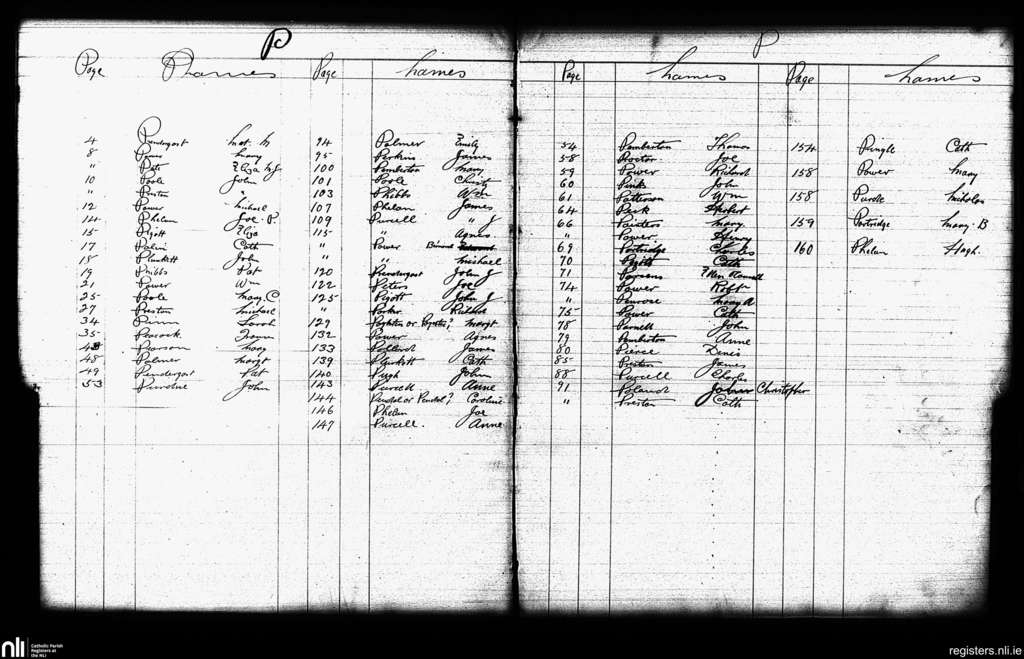 P
Page Names Page Names
4 Pendergast Mat. M
8 Power Mary
" Pate Eliza M J
10 Poole John
" Preston "
12 Power Michael
14 Phelan Joe. P.
15 Pigott Eliza
17 Cath
18 Plunkett John
19 Phibbs Pat
21 Power Wm
25 Poole Mary C
27 Preston Michael
34 Sarah
35 Peacock
Pearson Mary
48 Palmer Margt
49 Pendergast Pat
53 Purdue John
94 Palmer Emily
95 Perkins James
100 Pemberton Mary
101 Poole Christy
103 Phibbs Wm
107 Phelan James
109 Purcell " J
115 " Agnes
" Power
" Michael
120 Prendergast John J
122 Peters Joe
125 Pigott John J
" Parker
129 Margt
132 Power Agnes
133 Pollard James
139 Plunkett Cath
140 Pugh John
143 Purcell Anne
144 Pendel or Pendol? Caroline
146 Phelan Joe
147 Purcell. Anne
P
Page Names Page Names
54 Pemberton Thomas
58 Proctor Joe
59 Power Richard
60 Pinks John
61 Patterson Wm
64 Peck
66 Painters Mary
" Power. Henry
69 Partridge Charles
70 Cath
71 Parsons
74 Power Robt
" Penrose Mary A
75 Power Cath
78 Parnell John
79 Pemberton Anne
80 Pierce Denis
85 Preston James
88 Purcell Charles
91 Christopher
" Preston Cath
154 Pringle Cath
158 Power Mary
158 Purdle Nicholas
159 Partridge Mary. B
160 Phelan Hugh.
nli Catholic Parish
Registers at
the NLI
registers.nli.ie